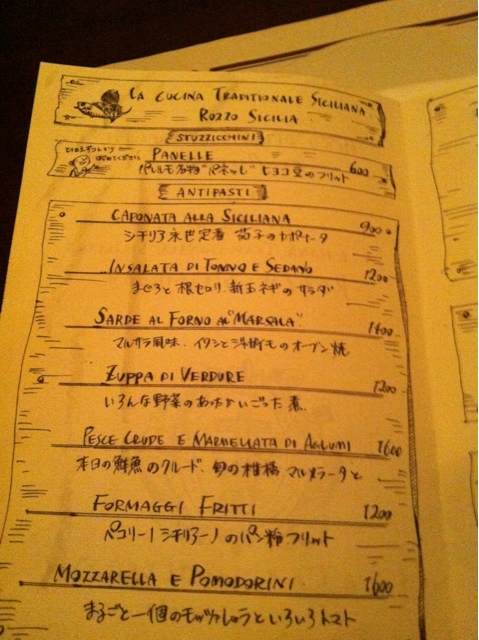 LA CUCINA TRADITIONALE SICILIANA
ROZZO SICILIA
STUZZICHINI
とりあえずコレから
はじめてください
PANELLE 600
パレルモ名物"パネッレ" ヒヨコ豆のフリット
ANTIPASTI
CAPONATA ALLA SICILIANA 900
シチリア永世定番 茄子のカポナータ
INSALATA DI TONNO E SEDANO 1200
まぐろと根セロリ、新玉ネギのサラダ
SARDE AL FORNO AL "MARSALA" 1400
マルサラ風味、イワシとジャガイモのオーブン焼
ZUPPA DI VERDURE 1200
いろんな野菜のあったかいごった煮
PESCE CRUDE E MARMELLATA DI AGRUMI 1600
本日の鮮魚のクルード、旬の柑橘マルメラータと
FORMAGGI FRITTI 1200
ペコリーノシチリアーノのパン粉フリット
MOZZARELLA E POMODORINI 1600
まるごと一個のモッツァレッラといろいろトマト